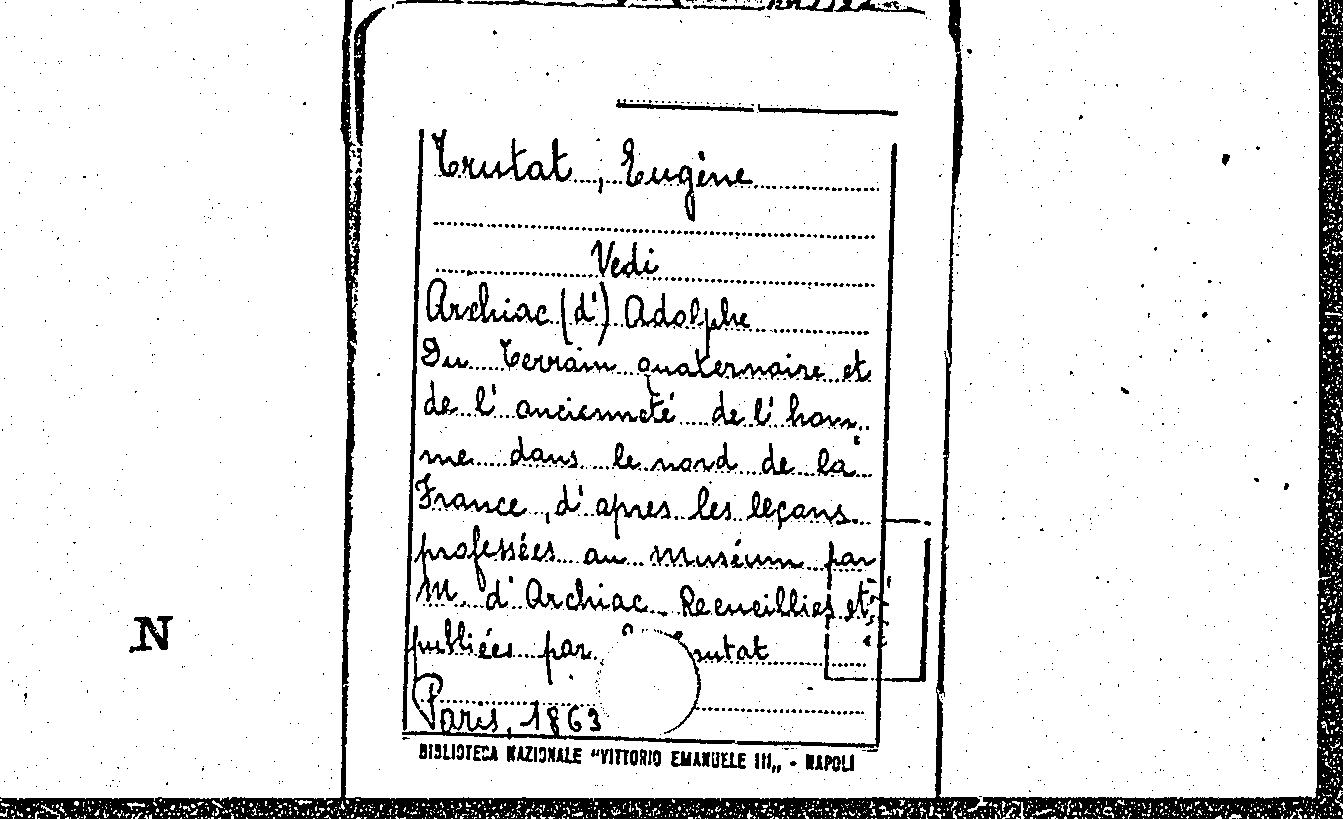 Trutat, Eugène
Vedi
Archiac (d') Adolphe
Du terrain quaternaire et
de l'ancienneté de l'hom-
me dans le nord de la
France, d'apres les leçons
professées au muséum par
M. d'Archiac. Recueillies et
publiées par rutat
Paris, 1863
BIBLIOTECA NAZIONALE "VITTORIO EMANUELE III„ - NAPOLI
N